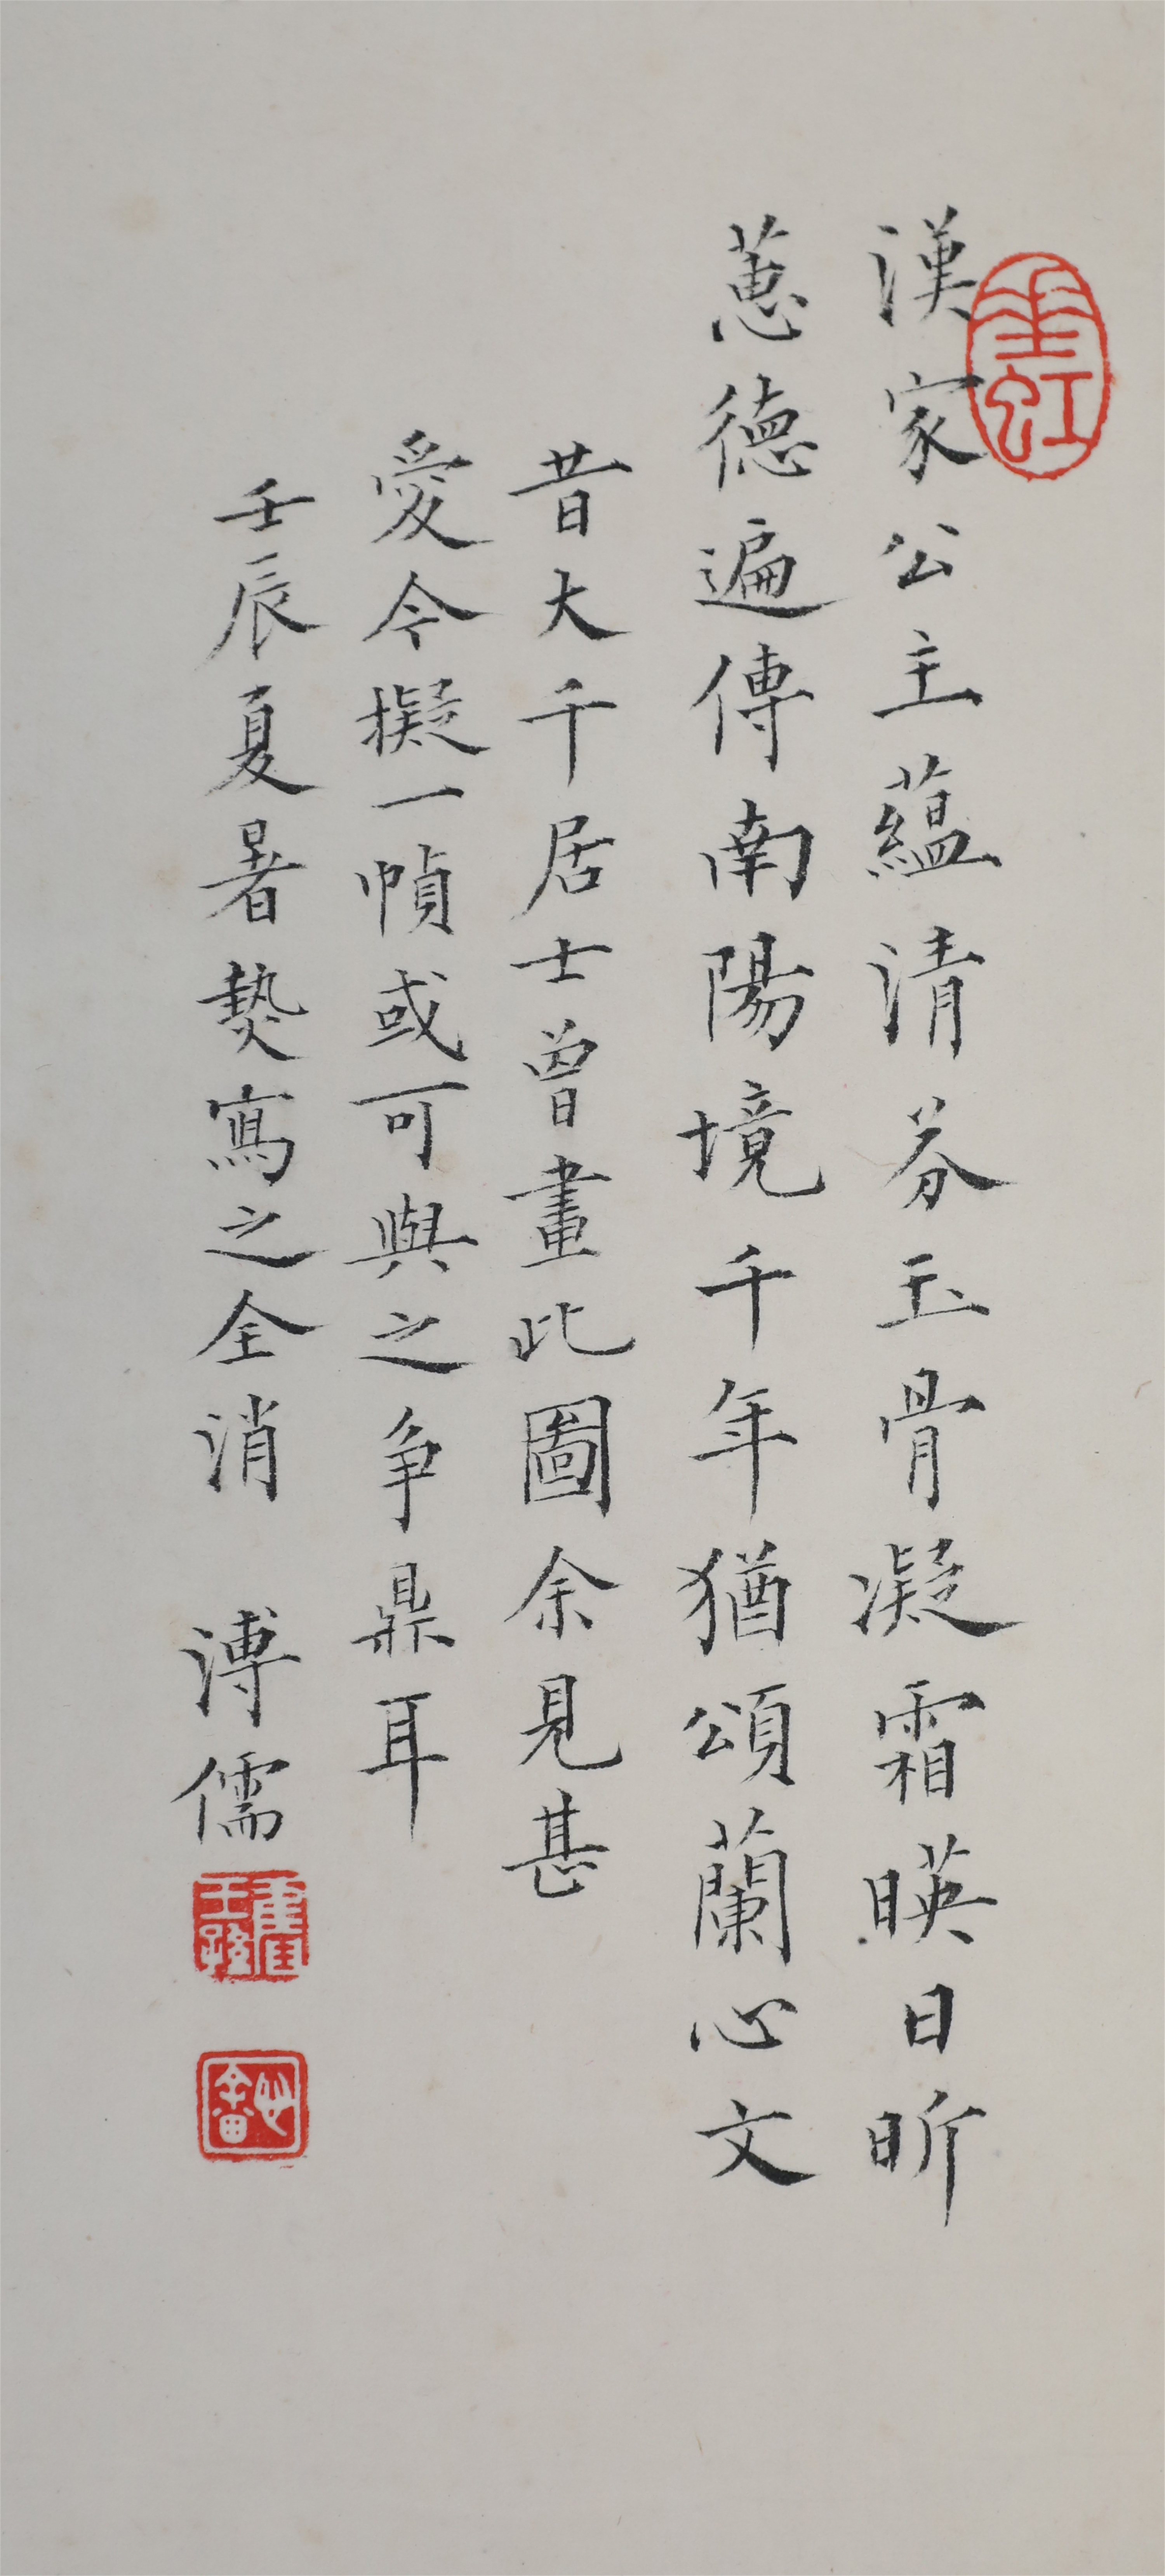 漢家公主蘊清芬玉骨凝霜暎日昕
蕙德遍傳南陽境千年猶頌蘭心文
昔大千居士曾畫此圖余見甚
愛今擬一幀或可與之爭鼎耳
壬辰夏暑熱寫之全消 溥儒
舊王孫
心畬